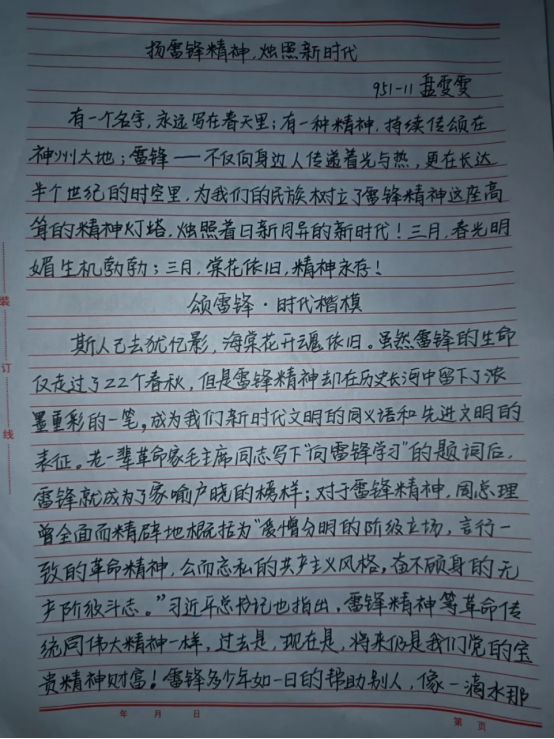 扬雷锋精神,烛照新时代
951-11 盘雯雯
有一个名字,永远写在春天里;有一种精神,持续传颂在
神州大地;雷锋——不仅向身边人传递着光与热,更在长达
半个世纪的时空里,为我们的民族树立了雷锋精神这座高
耸的精神灯塔,烛照着日新月异的新时代!三月,春光明
媚生机勃勃;三月,棠花依旧,精神永存!
颂雷锋·时代楷模
斯人已去犹忆影,海棠花开魂依旧。虽然雷锋的生命
仅走过了22个春秋,但是雷锋精神却在历史长河中留下了浓
墨重彩的一笔,成为我们新时代文明的同义语和先进文明的
表征。老一辈革命家毛主席同志写下“向雷锋学习”的题词后,
雷锋就成为了家喻户晓的榜样;对于雷锋精神,周总理
曾全面而精辟地概括为“爱憎分明的阶级立场,言行一
致的革命精神,公而忘私的共产主义风格,奋不顾身的无
产阶级斗志。”习近平总书记也指出,雷锋精神等革命传
统同伟大精神一样,过去是,现在是,将来仍是我们党的宝
贵精神财富!雷锋多少年如一日的帮助别人,像一滴水那
装
订
线
年 月 日
第 页